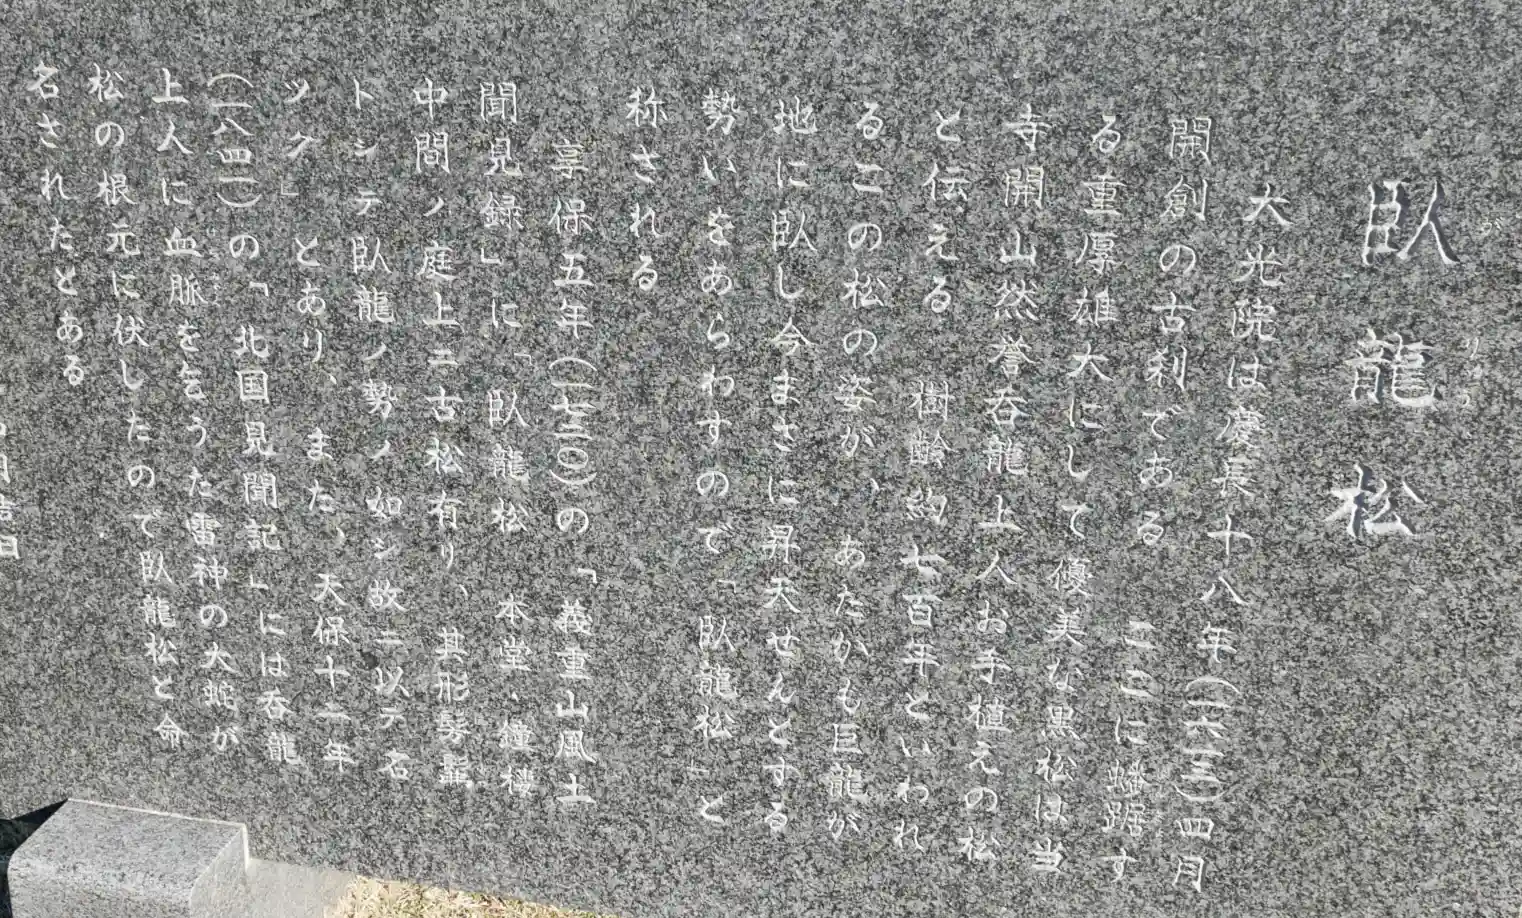 臥龍松
がりゅう
大光院は慶長十八年(一六一三)四月
開創の古刹である ここに蟠踞す
る重厚雄大にして優美な黒松は当
寺開山然誉呑龍上人お手植えの松
と伝える 樹齢約七百年といわれ
るこの松の姿が、あたかも巨龍が
地に臥し今まさに昇天せんとする
勢いをあらわすので「臥龍松」と
称される
享保五年(一七二〇)の「義重山風土
聞見録」に「臥龍松 本堂、鐘楼
中間ノ庭上ニ古松有リ、其形髣髴
トシテ臥龍ノ勢ノ如シ故ニ以テ名
ツク」とあり、また、天保十二年
(一八四一)の「北国見聞記」には呑龍
上人に血脈を乞うた雷神の大蛇が
松の根元に伏したので臥龍松と命
名されたとある
月吉日